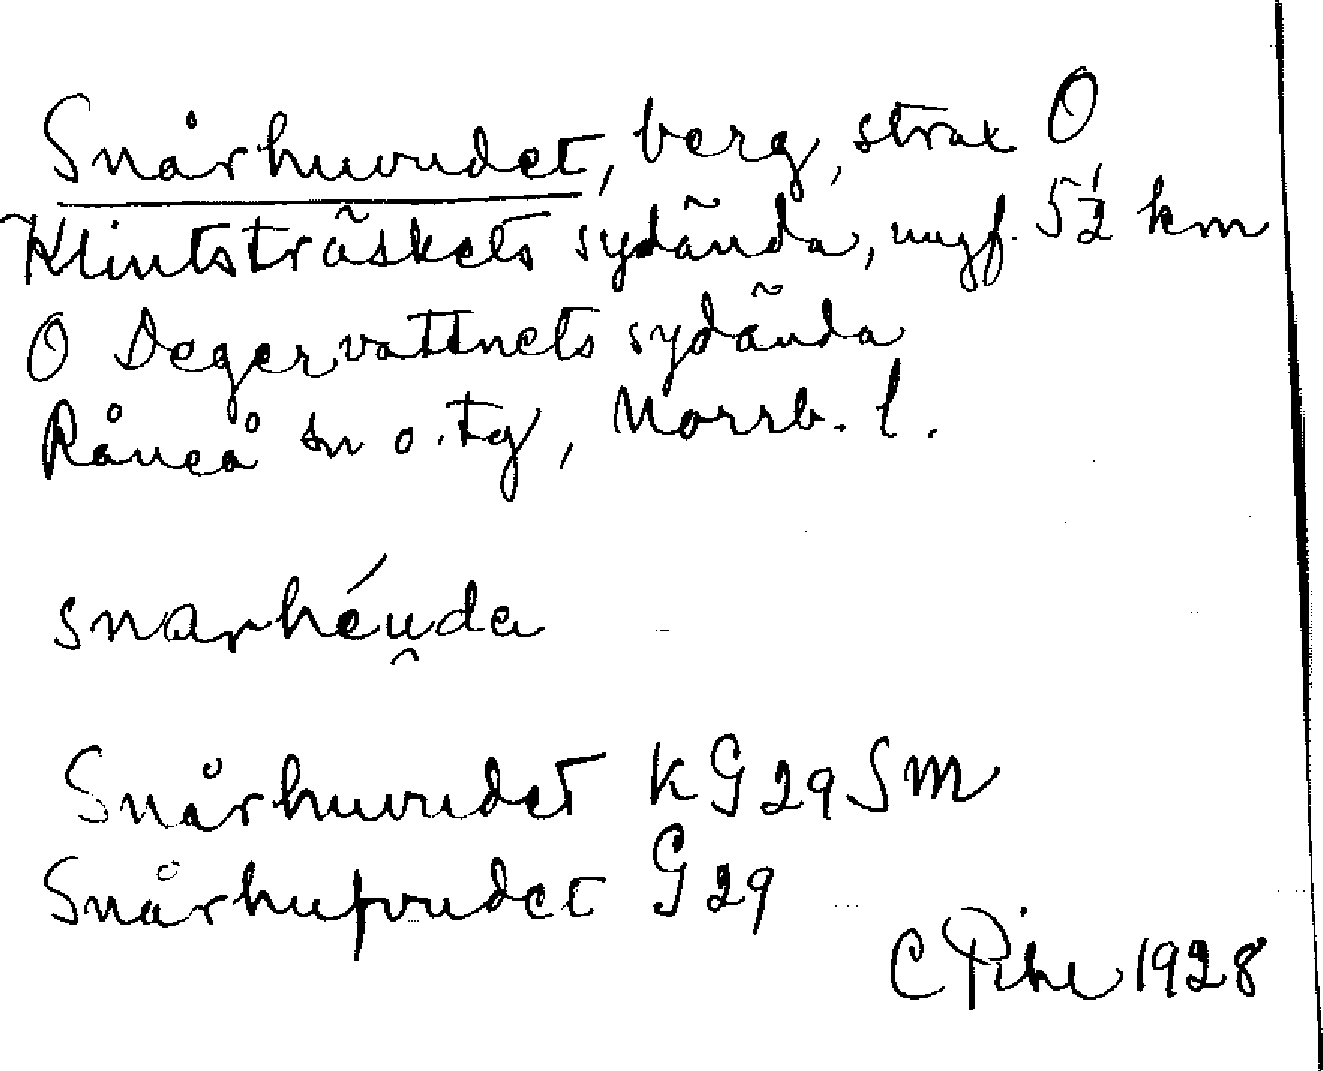 Snårhuvudet, berg, strax O
Klintsträskets sydända, ungf. 5½ km
O Degervattnets sydända
Råneå sn o. tg, Norrb. l.
snarhéu̯da
Snårhuvudet KG29SM
Snårhufvudet G29
C Pihl 1928